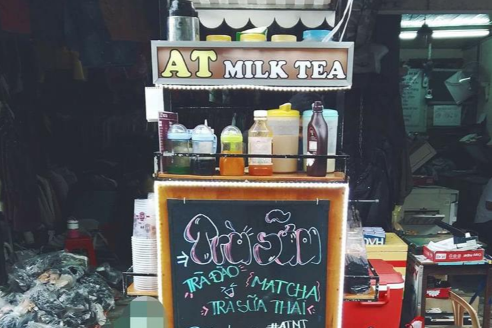 AT MILK TEA
Trà sữa
TRÀ ĐÀO MATCHA
TRÀ SỮA THÁI